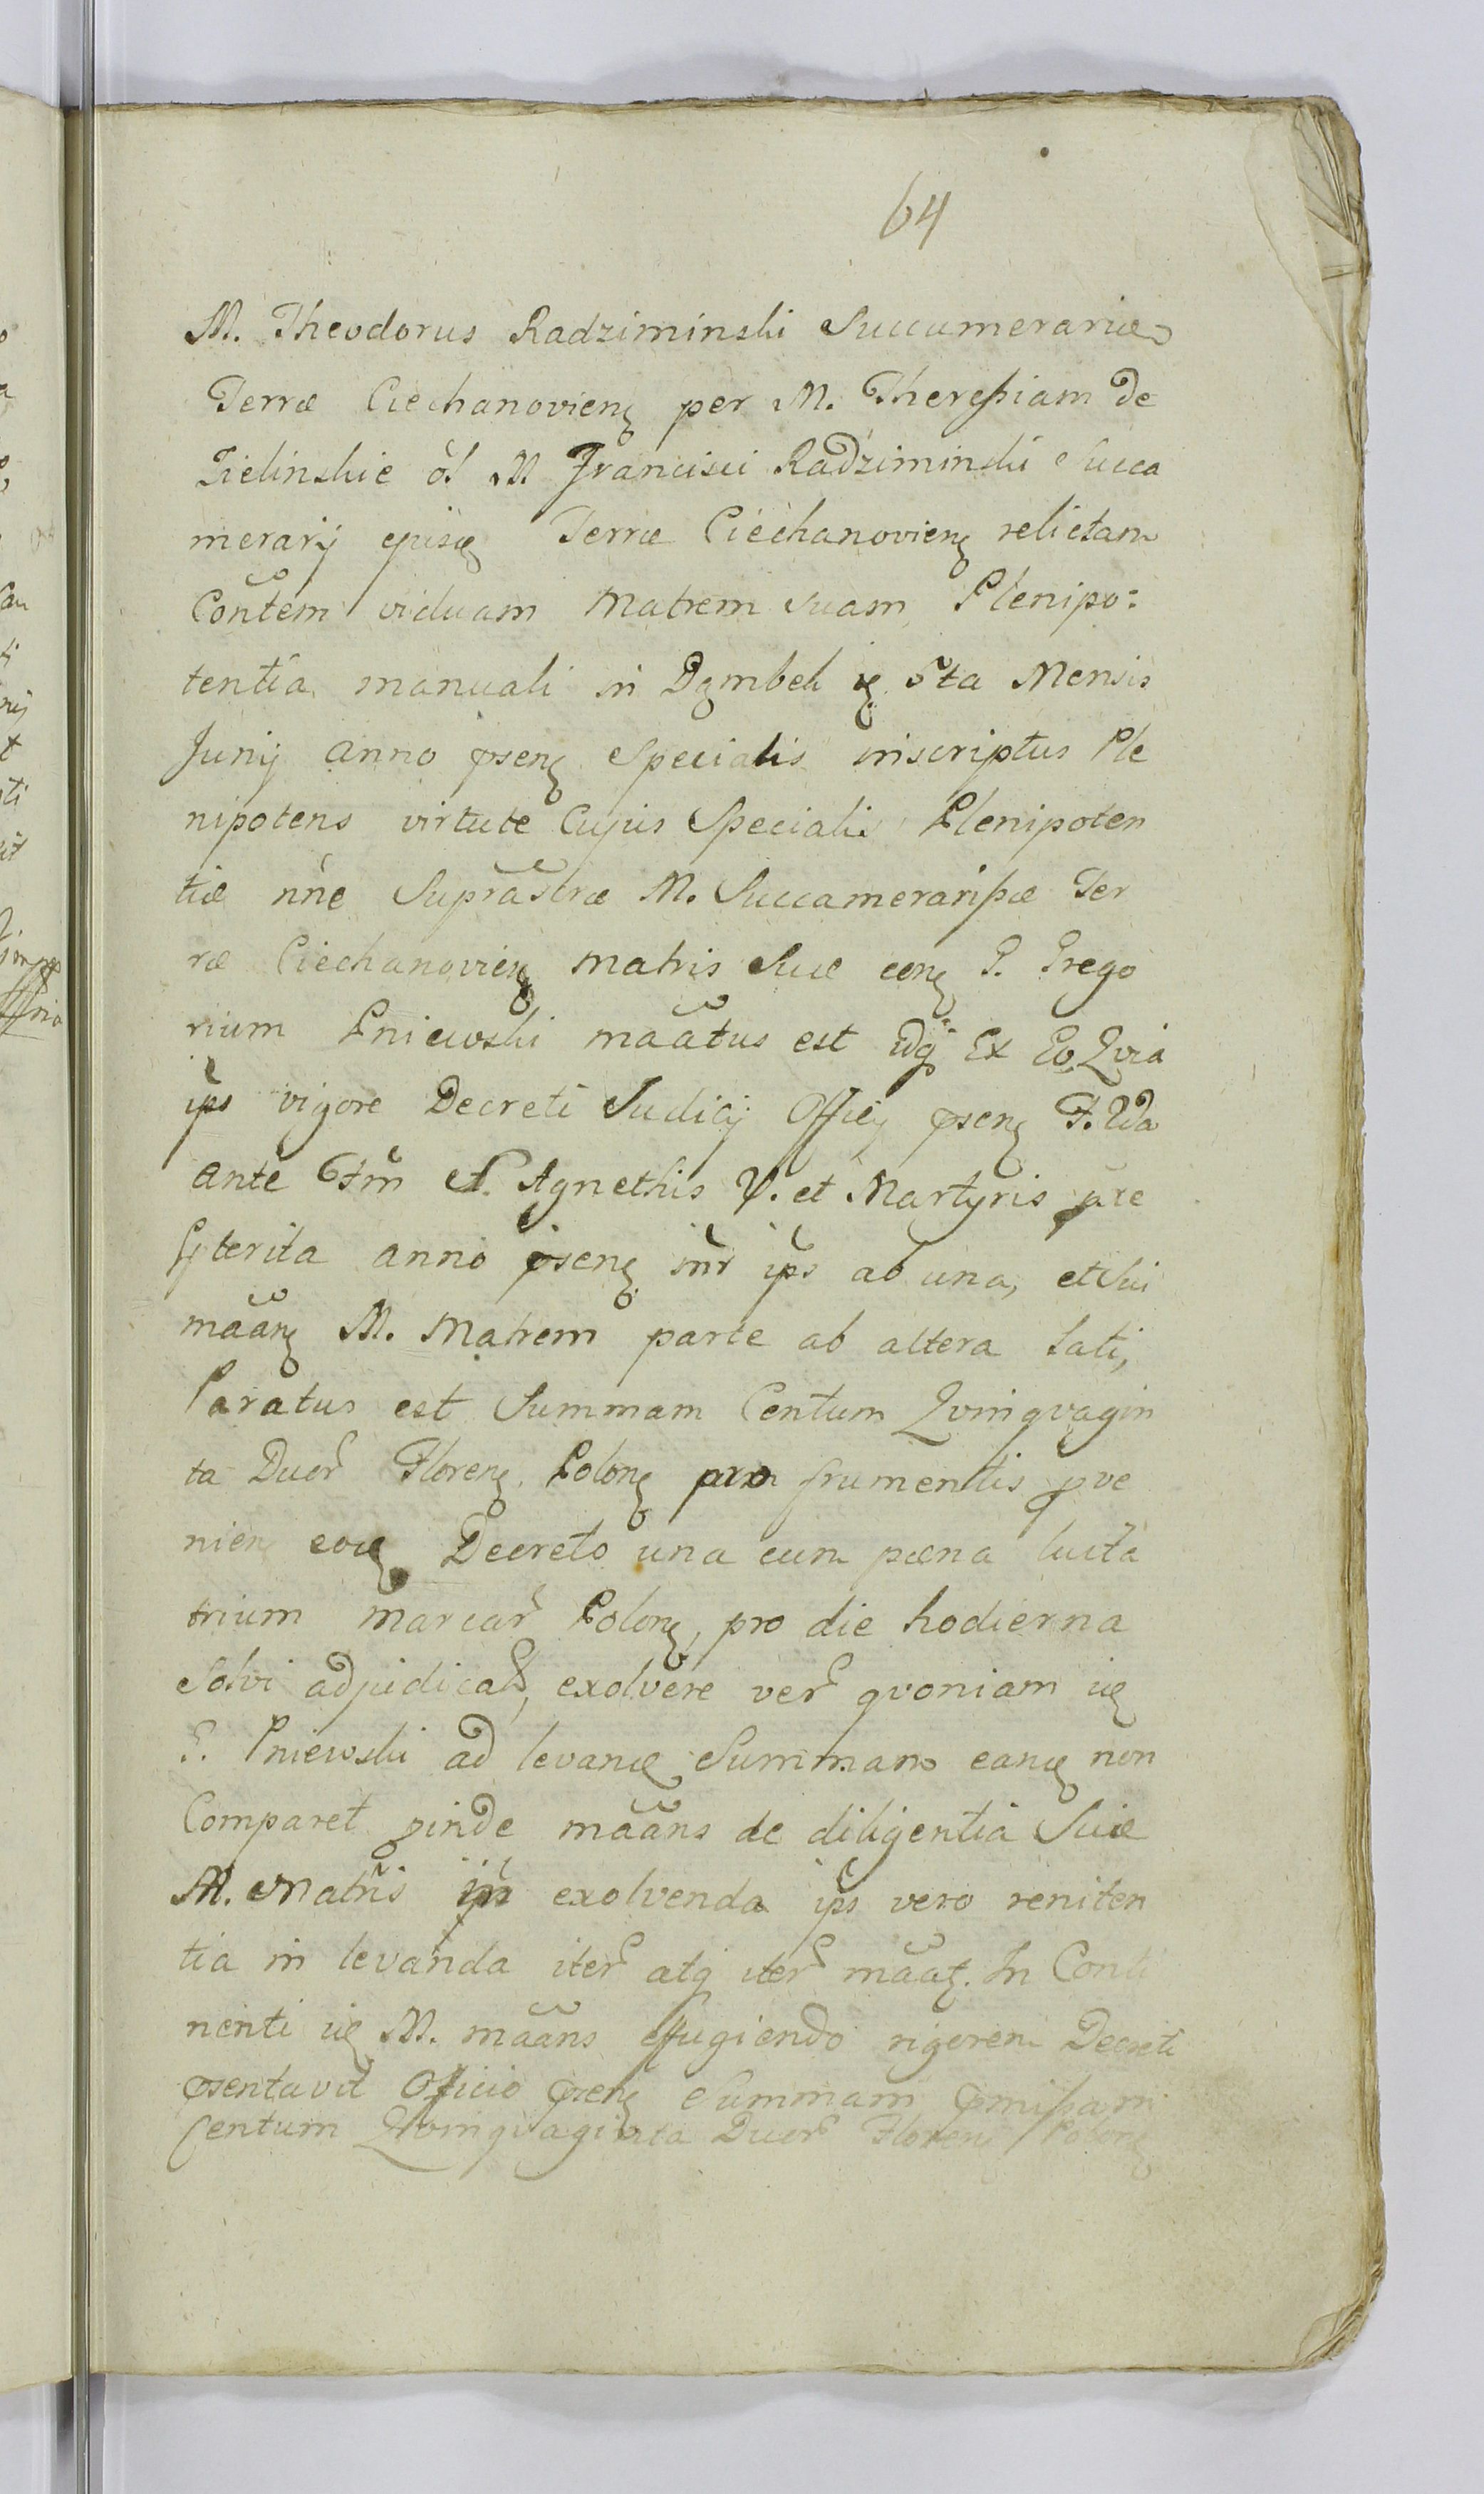 64
M. Theodorus Radziminski Succamerarius
Terræ Ciechanovien per M. Theressiam de
Zielinskie ol. M Francisci Radziminski Succa
merarij ejusd Terræ Ciechanovien relictam
Contem viduam Matrem suam Plenipo:
tentia manuali in Dąmbek 5ta Mensis
Junij anno psen Specialis inscriptus Ple
nipotens virtute Cujus Specialis Plenipoten
tiæ nne Suprascræ M. Succamerarissæ Ter
ræ Ciechanovien Matris Suæ con P. Grego
rium Pniewski maatus est idq Ex Eo Qvia
ips vigore Decreti Judicij Officij psen F. 2da
ante Ftm S. Agnethis V. et Martyris præ
terita anno psen intr ips ab una, et Sui
maan M. Matrem parte ab altera Lati,
Paratus est Summam Centum Qvinqvagin
ta Duor Floren. Polon pro frumentis pve
nien eod Decreto una cum pæna lucta
trium Marcar Polon, pro die hodierna
Solvi adjudicat, exolvere ver qvoniam id
P. Pniewski ad levand Summam eand non
Comparet pinde maans de diligentia Suæ
M. Matris in exolvenda ips vero reniten
tia in levanda iter atq iter maat. In Conti
nenti id M. maans effugiendo rigorem Decreti
psentavit Officio psen Summam pmissam
Centum Qvinqvaginta Duor Floren Polon